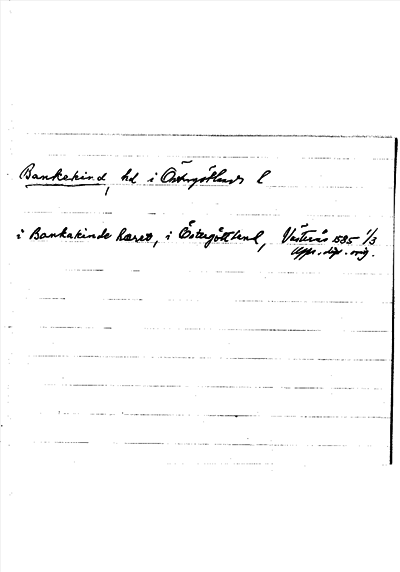 Bankekind, hd i Östergötlands l
i Bankakinde hæret, i Östergöttlend, Västerås 1585 1/3
Upps. dipl. orig.